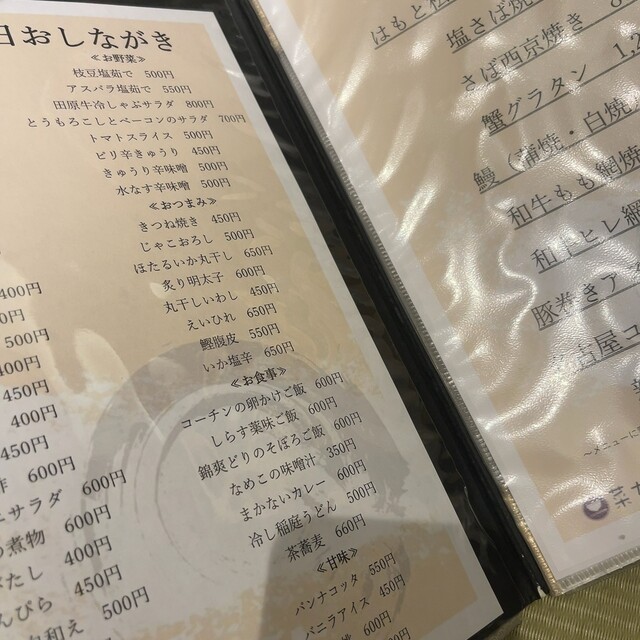 日おしながき
≪お野菜≫
枝豆塩茹で 500円
アスパラ塩茹で 550円
田原牛冷しゃぶサラダ 800円
とうもろこしとベーコンのサラダ 700円
トマトスライス 500円
ピリ辛きゅうり 450円
きゅうり辛味噌 500円
水なす辛味噌 500円
≪おつまみ≫
きつね焼き 450円
じゃこおろし 500円
ほたるいか丸干し 650円
炙り明太子 600円
丸干しいわし 450円
えいひれ 650円
鰹腹皮 550円
いか塩辛 650円
≪お食事≫
コーチンの卵かけご飯 600円
しらす薬味ご飯 600円
錦爽どりのそぼろご飯 600円
なめこの味噌汁 350円
まかないカレー 600円
冷し稲庭うどん 500円
茶蕎麦 660円
≪甘味≫
パンナコッタ 550円
バニラアイス 450円
600円
400円
0円
500円
400円
450円
400円
450円
600円
サラダ 600円
煮物 600円
たし 400円
んぴら 450円
和え 500円
はもと
塩さば焼
さば西京焼き
蟹グラタン 1,2
鰻（蒲焼・白焼
和牛もも網焼
和牛ヒレ網
豚巻きア
古屋コ
～メニューに